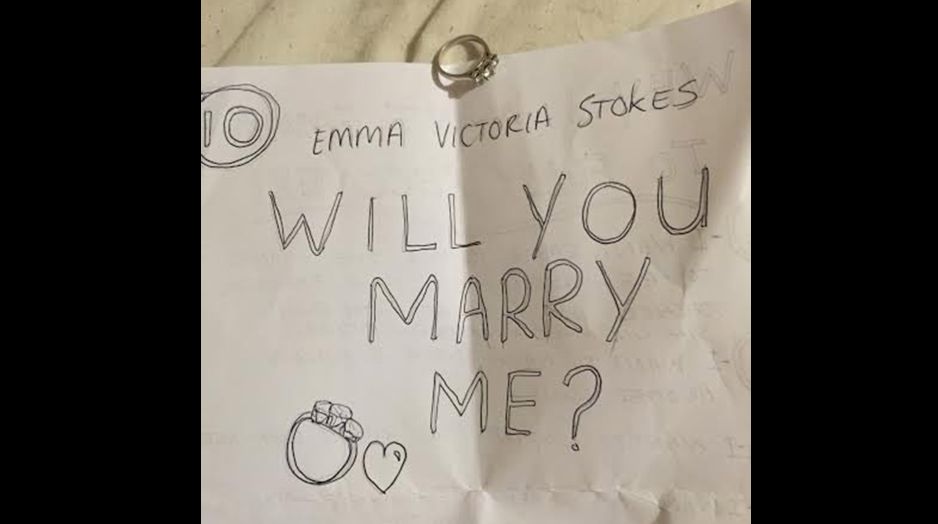 10
EMMA VICTORIA STOKES
WILL YOU
MARRY
ME?